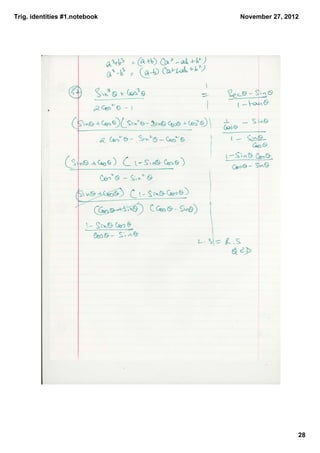 Trig. identities #1.notebook November 27, 2012
a³+b³ = (a+b) (a²-ab+b²)
a³-b³ = (a-b) (a²+ab+b²)
Sin³θ + Cos³θ / 2Cos²θ - 1 = Secθ - Sinθ / 1 - tanθ
(Sinθ + Cosθ)(Sin²θ - Sinθ Cosθ + Cos²θ) / 2 Cos²θ - Sin²θ - Cos²θ
1/Cosθ - Sinθ / 1 - Sinθ/Cosθ
(Sinθ + Cosθ) (1 - Sinθ Cosθ) / Cos²θ - Sin²θ
1 - Sinθ Cosθ / Cosθ - Sinθ
(Sinθ + Cosθ) (1 - Sinθ Cosθ) / (Cosθ + Sinθ) (Cosθ - Sinθ)
1 - Sinθ Cosθ / Cosθ - Sinθ
L.S = R.S
QED
28